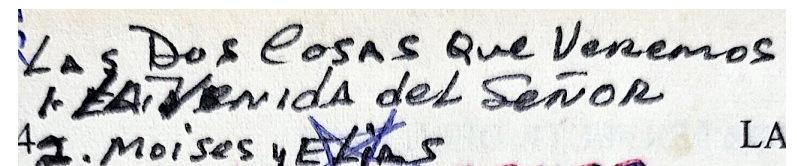 Las Dos Cosas que Veremos
1. LA Venida del Señor
4 2. Moises y Elias LA